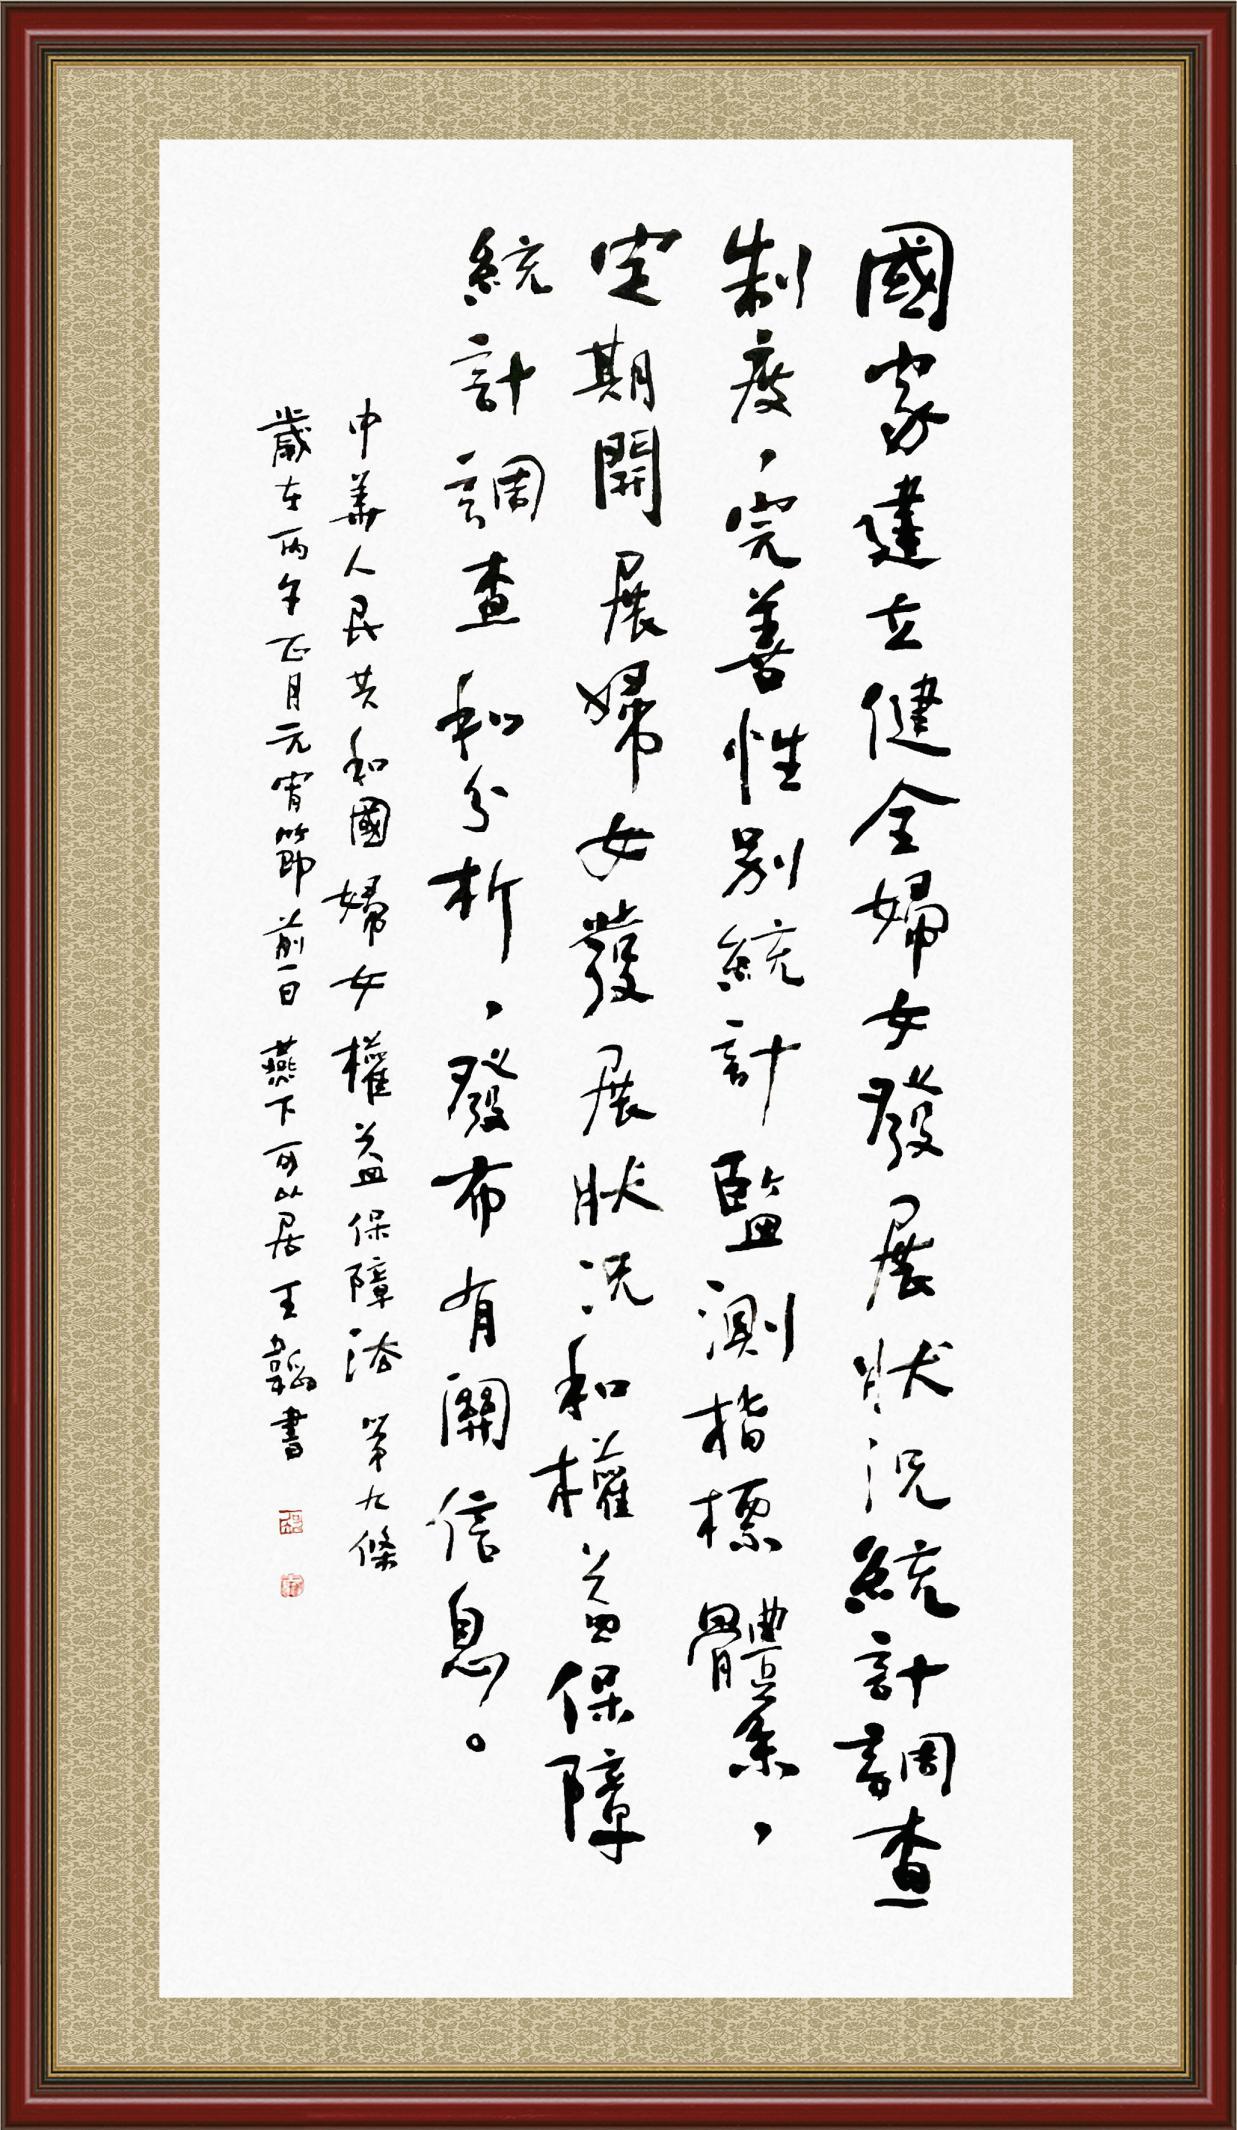 國家建立健全婦女發展狀況統計調查
制度，完善性别統計監測指標體系，
定期開展婦女發展狀况和權益保障
統計調查和分析，發布有關信息。
中華人民共和國婦女權益保障法 第九條
歲在丙午正月元宵節前一日 燕下可以居王韜書